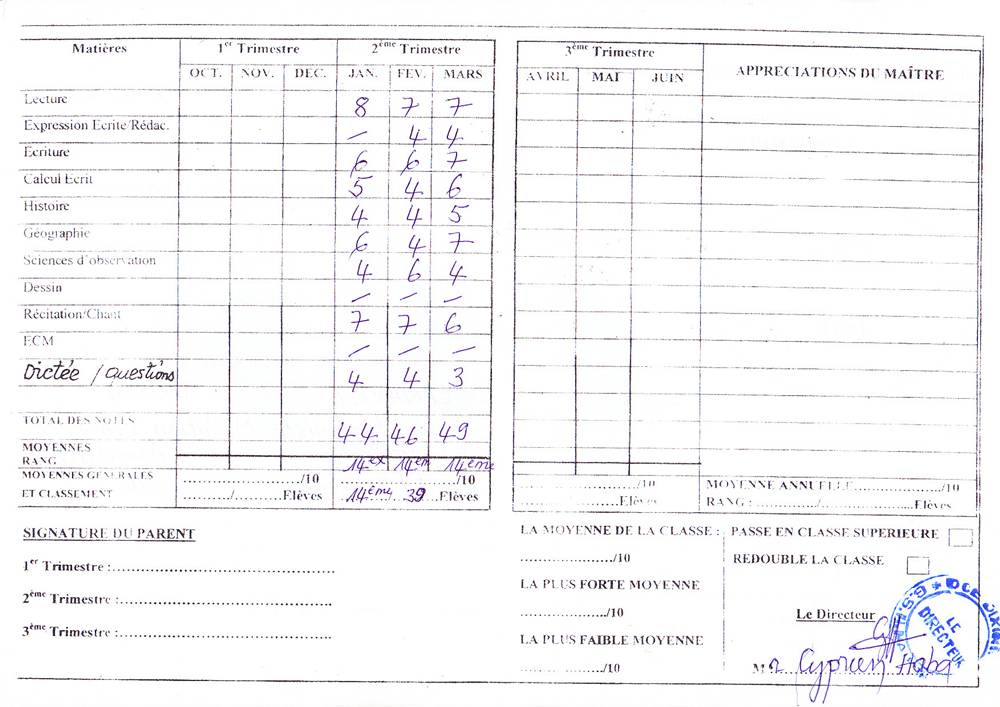 Matières 1er Trimestre 2ème Trimestre 3ème Trimestre APPRECIATIONS DU MAÎTRE
OCT. NOV. DEC. JAN. FEV. MARS AVRIL MAI JUIN
Lecture 8 7 7
Expression Ecrite/Rédac. – 4 4
Ecriture 6 6 7
Calcul Ecrit 5 4 6
Histoire 4 4 5
Géographie 6 4 7
Sciences d'observation 4 6 4
Dessin – – –
Récitation/Chant 7 7 6
ECM – – –
Dictée / questions 4 4 3
TOTAL DES NOTES 44 46 49
MOYENNES
RANG 14ex 14em 14ème
MOYENNES GENERALES ............/10 ............/10 ............/10 MOYENNE ANNUELLE ............/10
ET CLASSEMENT ........./.........Elèves 14ème 39 .Elèves .........Elèves RANG : ............/............Elèves
SIGNATURE DU PARENT
1er Trimestre :............
2ème Trimestre :............
3ème Trimestre :............
LA MOYENNE DE LA CLASSE :
............/10
LA PLUS FORTE MOYENNE
............/10
LA PLUS FAIBLE MOYENNE
............/10
PASSE EN CLASSE SUPERIEURE
REDOUBLE LA CLASSE
Le Directeur
LE
DIRECTEUR
Cyprien Haba